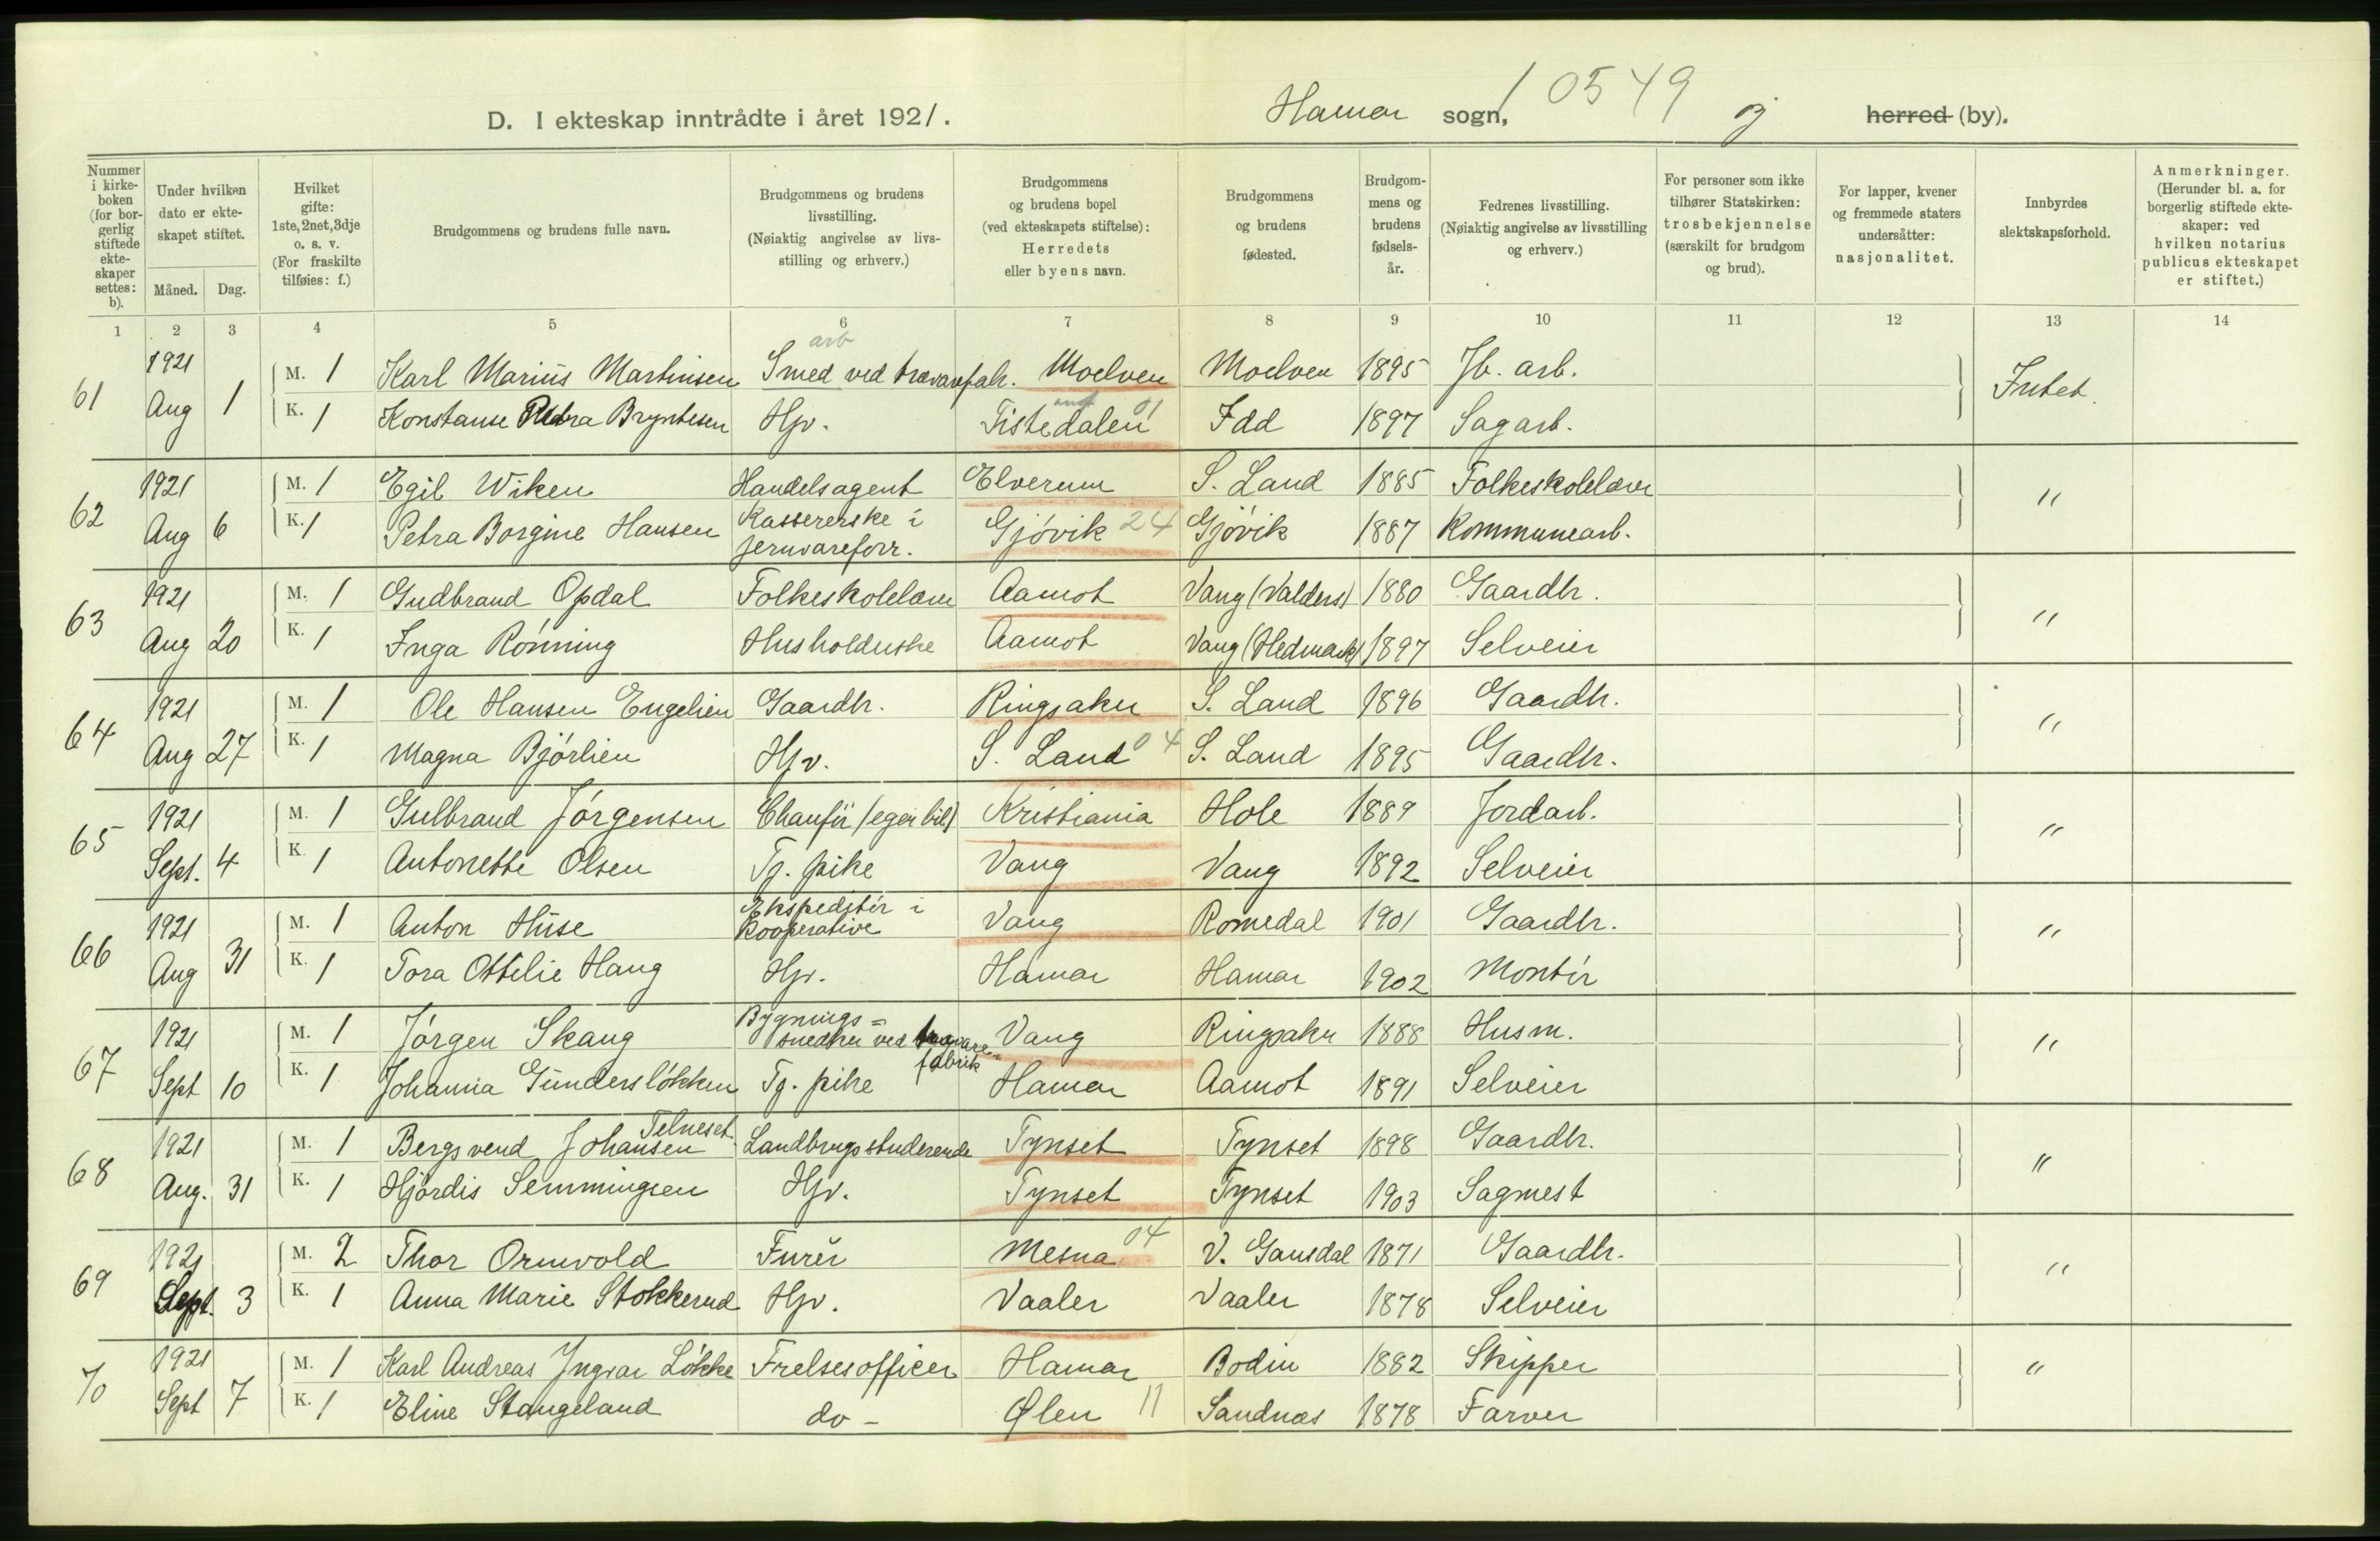 D. I ekteskap inntrådte i året 1921.
Hamar sogn, 10549 og herred (by).
Nummer i kirkeboken (for borgerlig stiftede ekteskaper settes: b).
Under hvilken dato er ekteskapet stiftet.
Måned. Dag.
Hvilket gifte: 1ste, 2net, 3dje o. s. v. (For fraskilte tilføies: f.)
Brudgommens og brudens fulle navn.
Brudgommens og brudens livsstilling. (Nøiaktig angivelse av livsstilling og erhverv.)
Brudgommens og brudens bopel (ved ekteskapets stiftelse): Herredets eller byens navn.
Brudgommens og brudens fødested.
Brudgommens og brudens fødselsår.
Fedrenes livsstilling. (Nøiaktig angivelse av livsstilling og erhverv.)
For personer som ikke tilhører Statskirken: trosbekjennelse (særskilt for brudgom og brud).
For lapper, kvener og fremmede staters undersåtter: nasjonalitet.
Innbyrdes slektskapsforhold.
Anmerkninger. (Herunder bl. a. for borgerlig stiftede ekteskaper: ved hvilken notarius publicus ekteskapet er stiftet.)
1 2 3 4 5 6 7 8 9 10 11 12 13 14
arb
61 1921 Aug 1 M. 1 Karl Marius Martinsen Smed ved trævarefabr. Moelven Moelven 1895 Jb. arb. Intet.
K. 1 Konstanse Petra Bryntesen Hjv. Tistedalen 01 Idd 1897 Sagarb.
62 1921 Aug 6 M. 1 Egil Wiken Handelsagent Elverum S. Land 1885 Folkeskolelærer "
K. 1 Petra Borgine Hansen Kassererske i jernvareforr. Gjövik 24 Gjövik 1887 Kommunearb.
63 1921 Aug 20 M. 1 Gudbrand Opdal Folkeskolelærer Aamot Vang (Valders) 1880 Gaardbr. "
K. 1 Inga Rönning Husholderske Aamot Vang (Hedmark) 1897 Selveier
64 1921 Aug 27 M. 1 Ole Hansen Engelien Gaardbr. Ringsaker S. Land 1896 Gaardbr. "
K. 1 Magna Bjórlien Hjv. S. Land 04 S. Land 1895 Gaardbr.
65 1921 Sept. 4 M. 1 Gulbrand Jórgensen Chaufför (egen bil) Kristiania Hole 1889 Jordarb. "
K. 1 Antonette Olsen Tj. pike Vang Vang 1892 Selveier
66 1921 Aug 31 M. 1 Anton Huse Ekspeditör i Kooperative Vang Romedal 1901 Gaardbr. "
K. 1 Tora Ottilie Haug Hjv. Hamar Hamar 1902 Montör
67 1921 Sept 10 M. 1 Jörgen Skaug Bygnings= snedker ved trævare= fabrik Vang Ringsaker 1888 Husm. "
K. 1 Johanna Gunderslökken Tj. pike Hamar Aamot 1891 Selveier
68 1921 Aug. 31 M. 1 Bergsvend Johansen Telneset. Landbrugsstuderende Tynset Tynset 1898 Gaardbr. "
K. 1 Hjördis Semmingsen Hjv. Tynset Tynset 1903 Sagmest
69 1921 Sept. 3 M. 2 Thor Ormvold Furer Mesna 04 V. Gausdal 1871 Gaardbr. "
K. 1 Anna Marie Stokkerud Hjv. Vaaler Vaaler 1878 Selveier
70 1921 Sept 7 M. 1 Karl Andreas Yngvar Lökke Frelsesofficer Hamar Bodin 1882 Skipper "
K. 1 Eline Stangeland do - Ølen 11 Sandnæs 1878 Farver